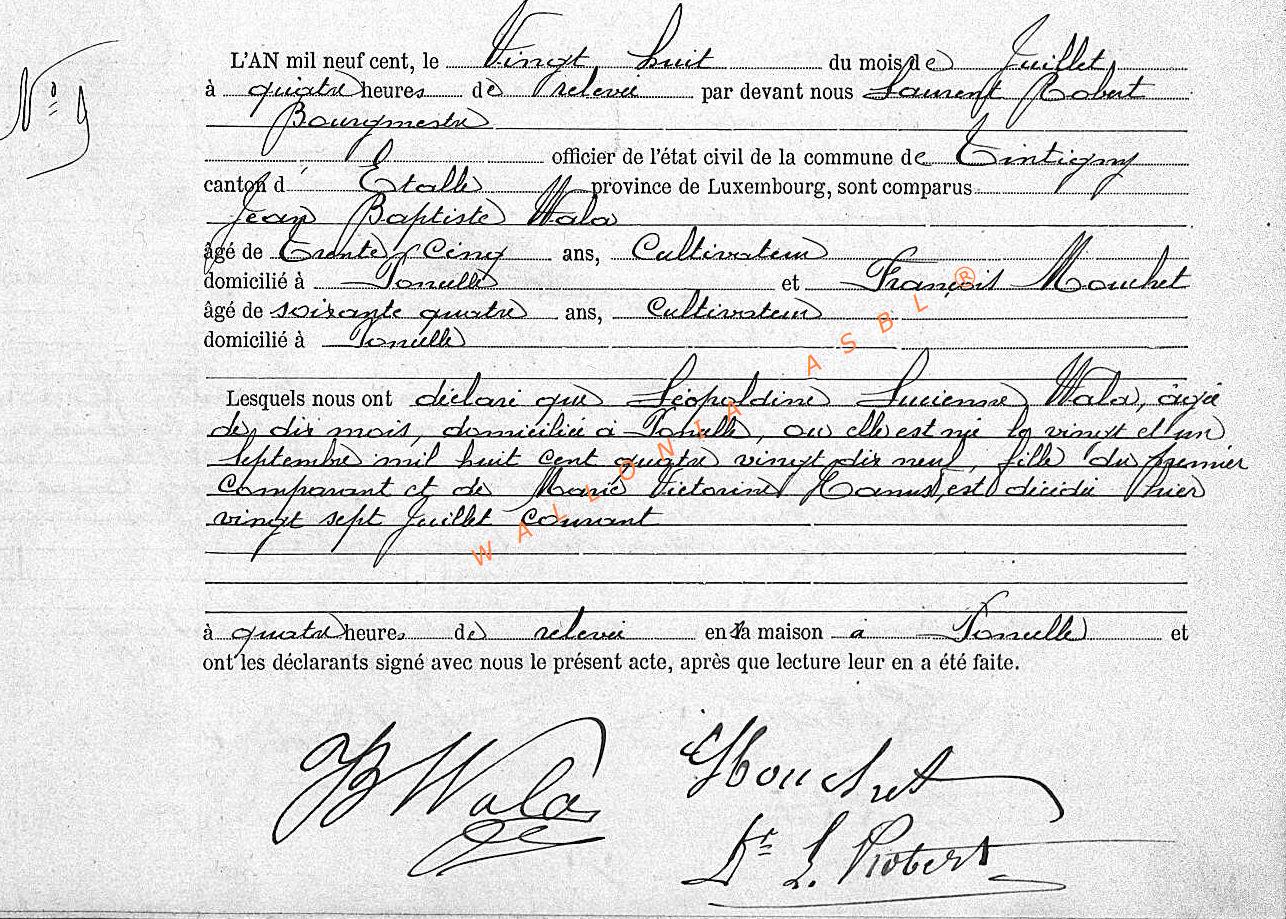 N° 9
L'AN mil neuf cent, le Vingt huit du mois de Juillet,
à quatre heures de relevée par devant nous Laurent Robert
Bourgmestre
officier de l'état civil de la commune de Tintigny
canton d'Etalle province de Luxembourg, sont comparus
Jean Baptiste Wala
âgé de Trente Cinq ans, Cultivateur
domicilié à Poncelle et François Mouchet
âgé de soixante quatre ans, Cultivateur
domicilié à Poncelle
Lesquels nous ont déclaré que Léopoldine Lucienne Wala, âgée
de dix mois, domiciliée à Poncelle, ou elle est née le vingt et un
septembre mil huit cent quatre vingt dix neuf, fille du premier
comparant et de Marie Victorine Hanus, est décédée hier
vingt sept Juillet courant
à quatre heures de relevée en sa maison à Poncelle et
ont les déclarants signé avec nous le présent acte, après que lecture leur en a été faite.
JB Wala
Mouchet
Dr L. Robert
WALLONIA ASBL ®